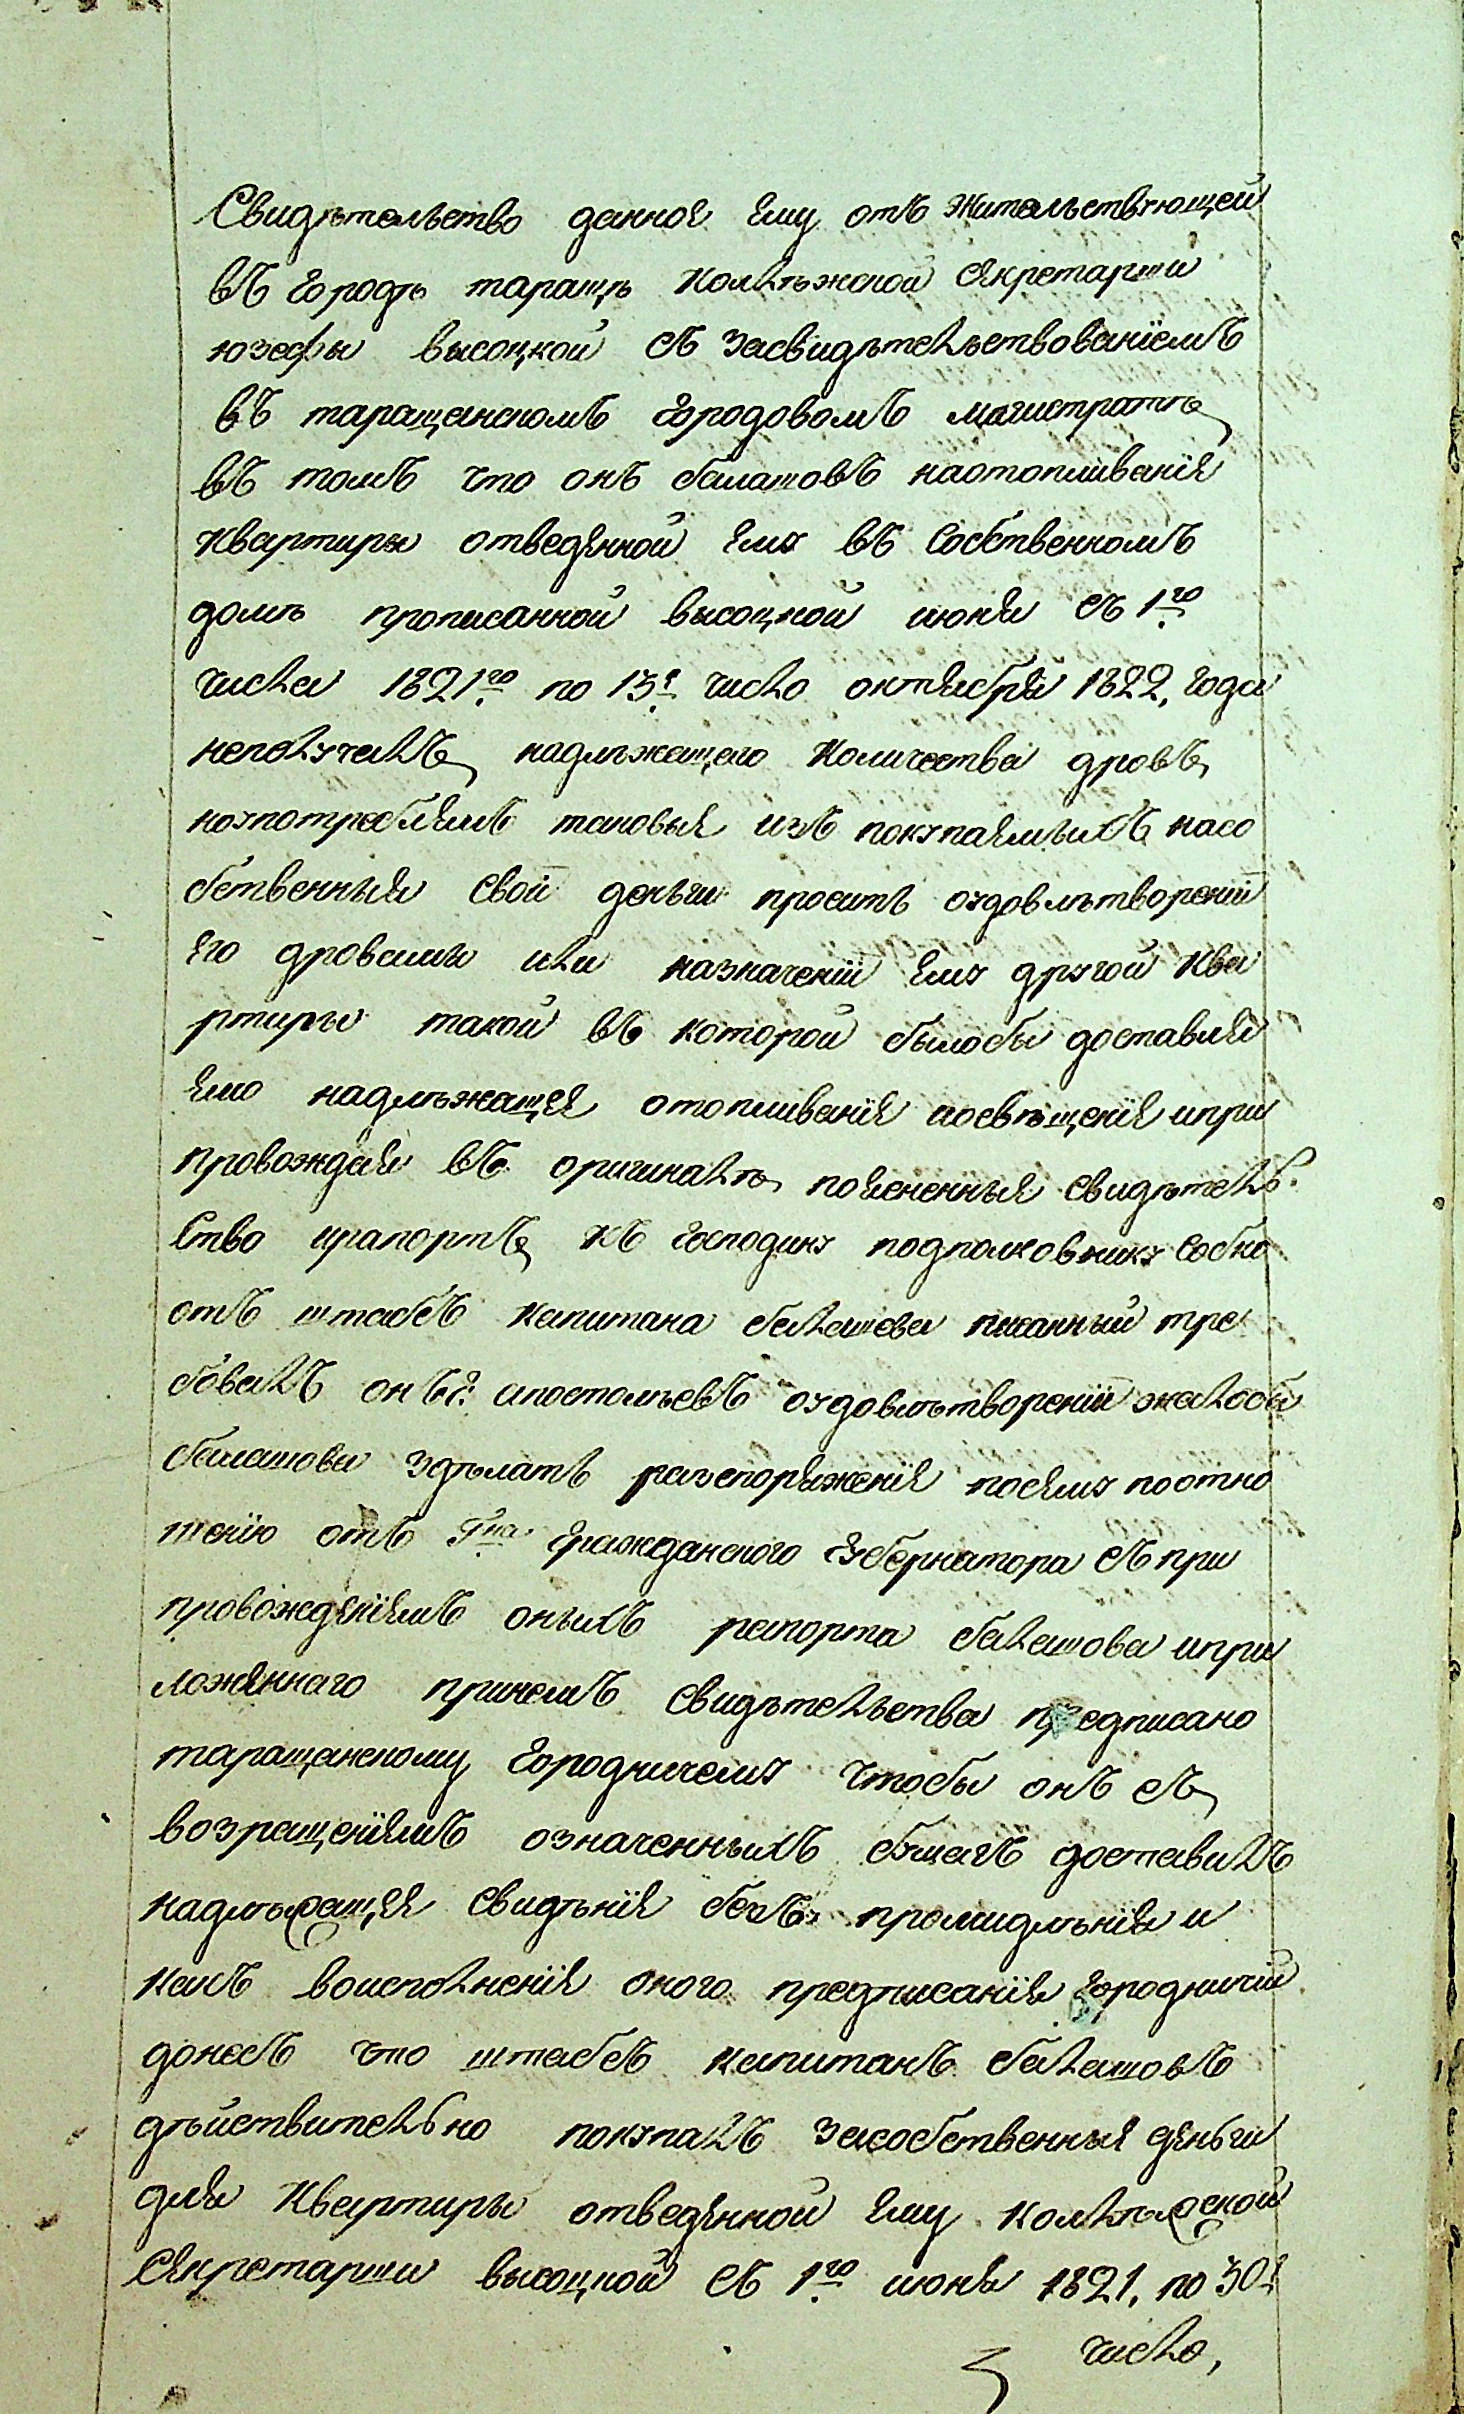 Свидѣтельство данное ему отъ жительствующей
въ городѣ таращѣ колѣжской секретарши
юзефы высоцкой съ засвидѣтельствованіемъ
въ таращанскомъ городовомъ магистратѣ
въ томъ что онъ балашовъ наотопливанія
квартиры отведенной ему въ собственномъ
домѣ прописанной высоцкой июня съ 1го
числа 1821го по 13е число октября 1822, года
неполучалъ надлѣжащего количества дровъ,
ноупотреблялъ таковыя изъ покупаемыхъ насо
бственныя свои деньги проситъ оудовлѣтвореніи
его дровами или назначеніи ему другой ква
ртиры такой въ которой былобы доставля
емо надлѣжащея отопливанія иосвѣщенія ипри
провождая въ оригиналѣ поясненныя свидѣтель
ство ирапортъ къ господину подполковнику собко
отъ штабъ капитана балашова писанный тре
бовалъ онъ г: апостольевъ оудовлѣтвореніи жалобы
балашова здѣлатъ распоряженія посему поотно
шенію отъ Гна гражданского губернатора съ при
провожденіемъ оныхъ рапорта балашова ипри
ложеннаго принемъ свидѣтельства предписано
таращанскому городничему чтобы онъ съ
возращеніемъ означенныхъ бумагъ доставилъ
надлѣжащея свидѣнія безъ промидлѣнія и
какъ воисполненія оного предписанія городничій
донесъ что штабсъ капитанъ балашовъ
дѣйствительно покупалъ засобственныя деньги
для квартиры отведенной ему колѣжской
секретарши высоцкой съ 1го июня 1821, по 30е
число,